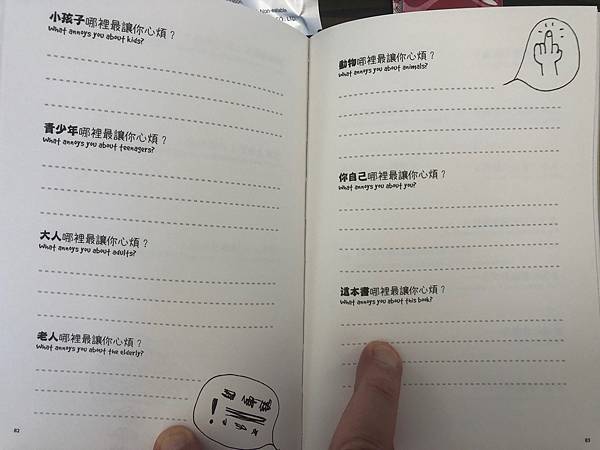 Non-edible
CO., LTD.
小孩子哪裡最讓你心煩？
What annoys you about kids?
青少年哪裡最讓你心煩？
What annoys you about teenagers?
大人哪裡最讓你心煩？
What annoys you about adults?
老人哪裡最讓你心煩？
What annoys you about the elderly?
82
動物哪裡最讓你心煩？
What annoys you about animals?
你自己哪裡最讓你心煩？
What annoys you about you?
這本書哪裡最讓你心煩？
What annoys you about this book?
83